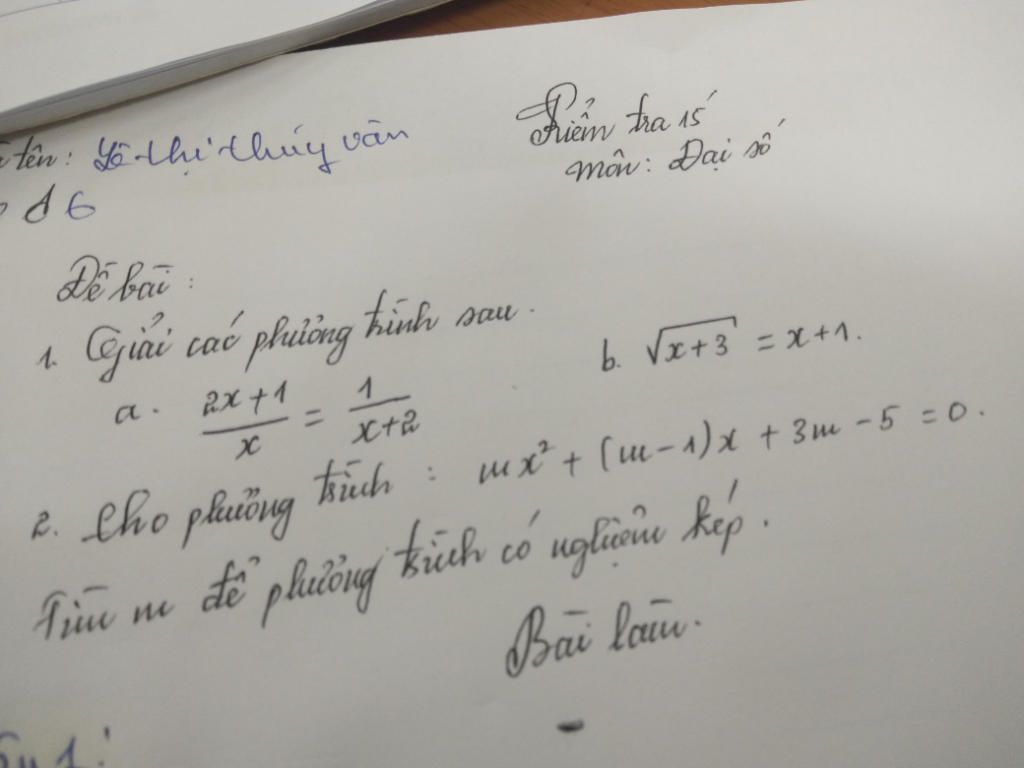 tên: Lê thị thúy vân
Kiểm tra 15'
Môn: Đại số
6
Đề bài:
1. Giải các phương trình sau.
a. (2x+1)/x = 1/(x+2)
b. √(x+3) = x+1.
2. Cho phương trình: mx² + (m-1)x + 3m - 5 = 0.
Tìm m để phương trình có nghiệm kép.
Bài làm.